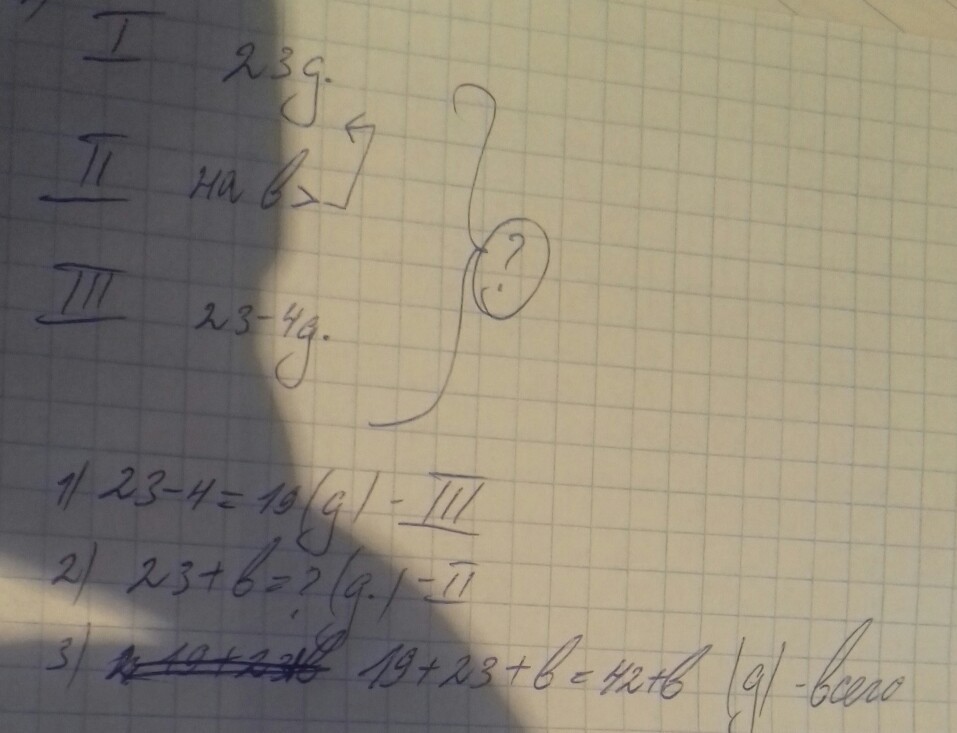 I 23 д.
II на в >
?
III 23-4 д.
1) 23-4=19(д) - III
2) 23+в=?(д.) - II
3) 19+23+в 19+23+в=42+в (д) - всего